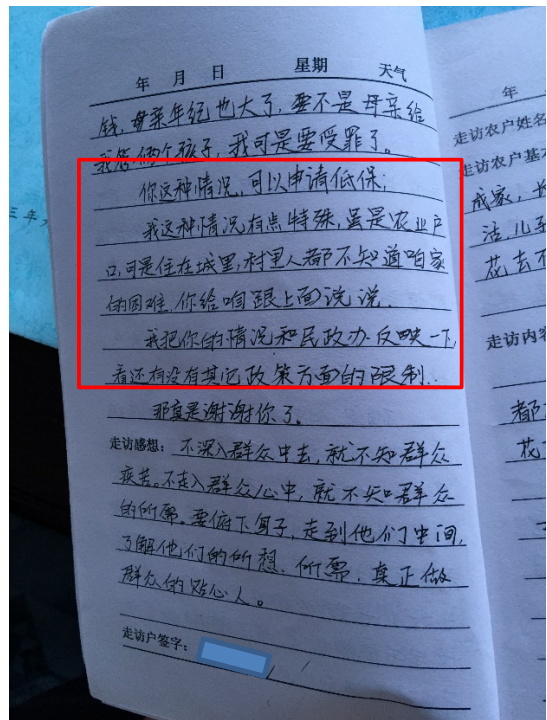 年 月 日 星期 天气
钱,母亲年纪也大了,要不是母亲给
我管俩个孩子,我可是要受罪了。
你这种情况,可以申请低保;
我这种情况有点特殊,虽是农业户
口,可是住在城里,村里人都不知道咱家
的困难,你给咱跟上面说说.
我把你的情况和民政办反映一下,
看还有没有其它政策方面的限制.
那真是谢谢你了。
走访感想:不深入群众中去,就不知群众
疾苦。不走入群众心中,就不知群众
的所需。要俯下身子,走到他们中间,
了解他们的所想、所需,真正做
群众的贴心人。
走访户签字:
三年
年
走访农户姓名
走访农户基本
成家,长
活,儿子
花去不
走访内容
都
花